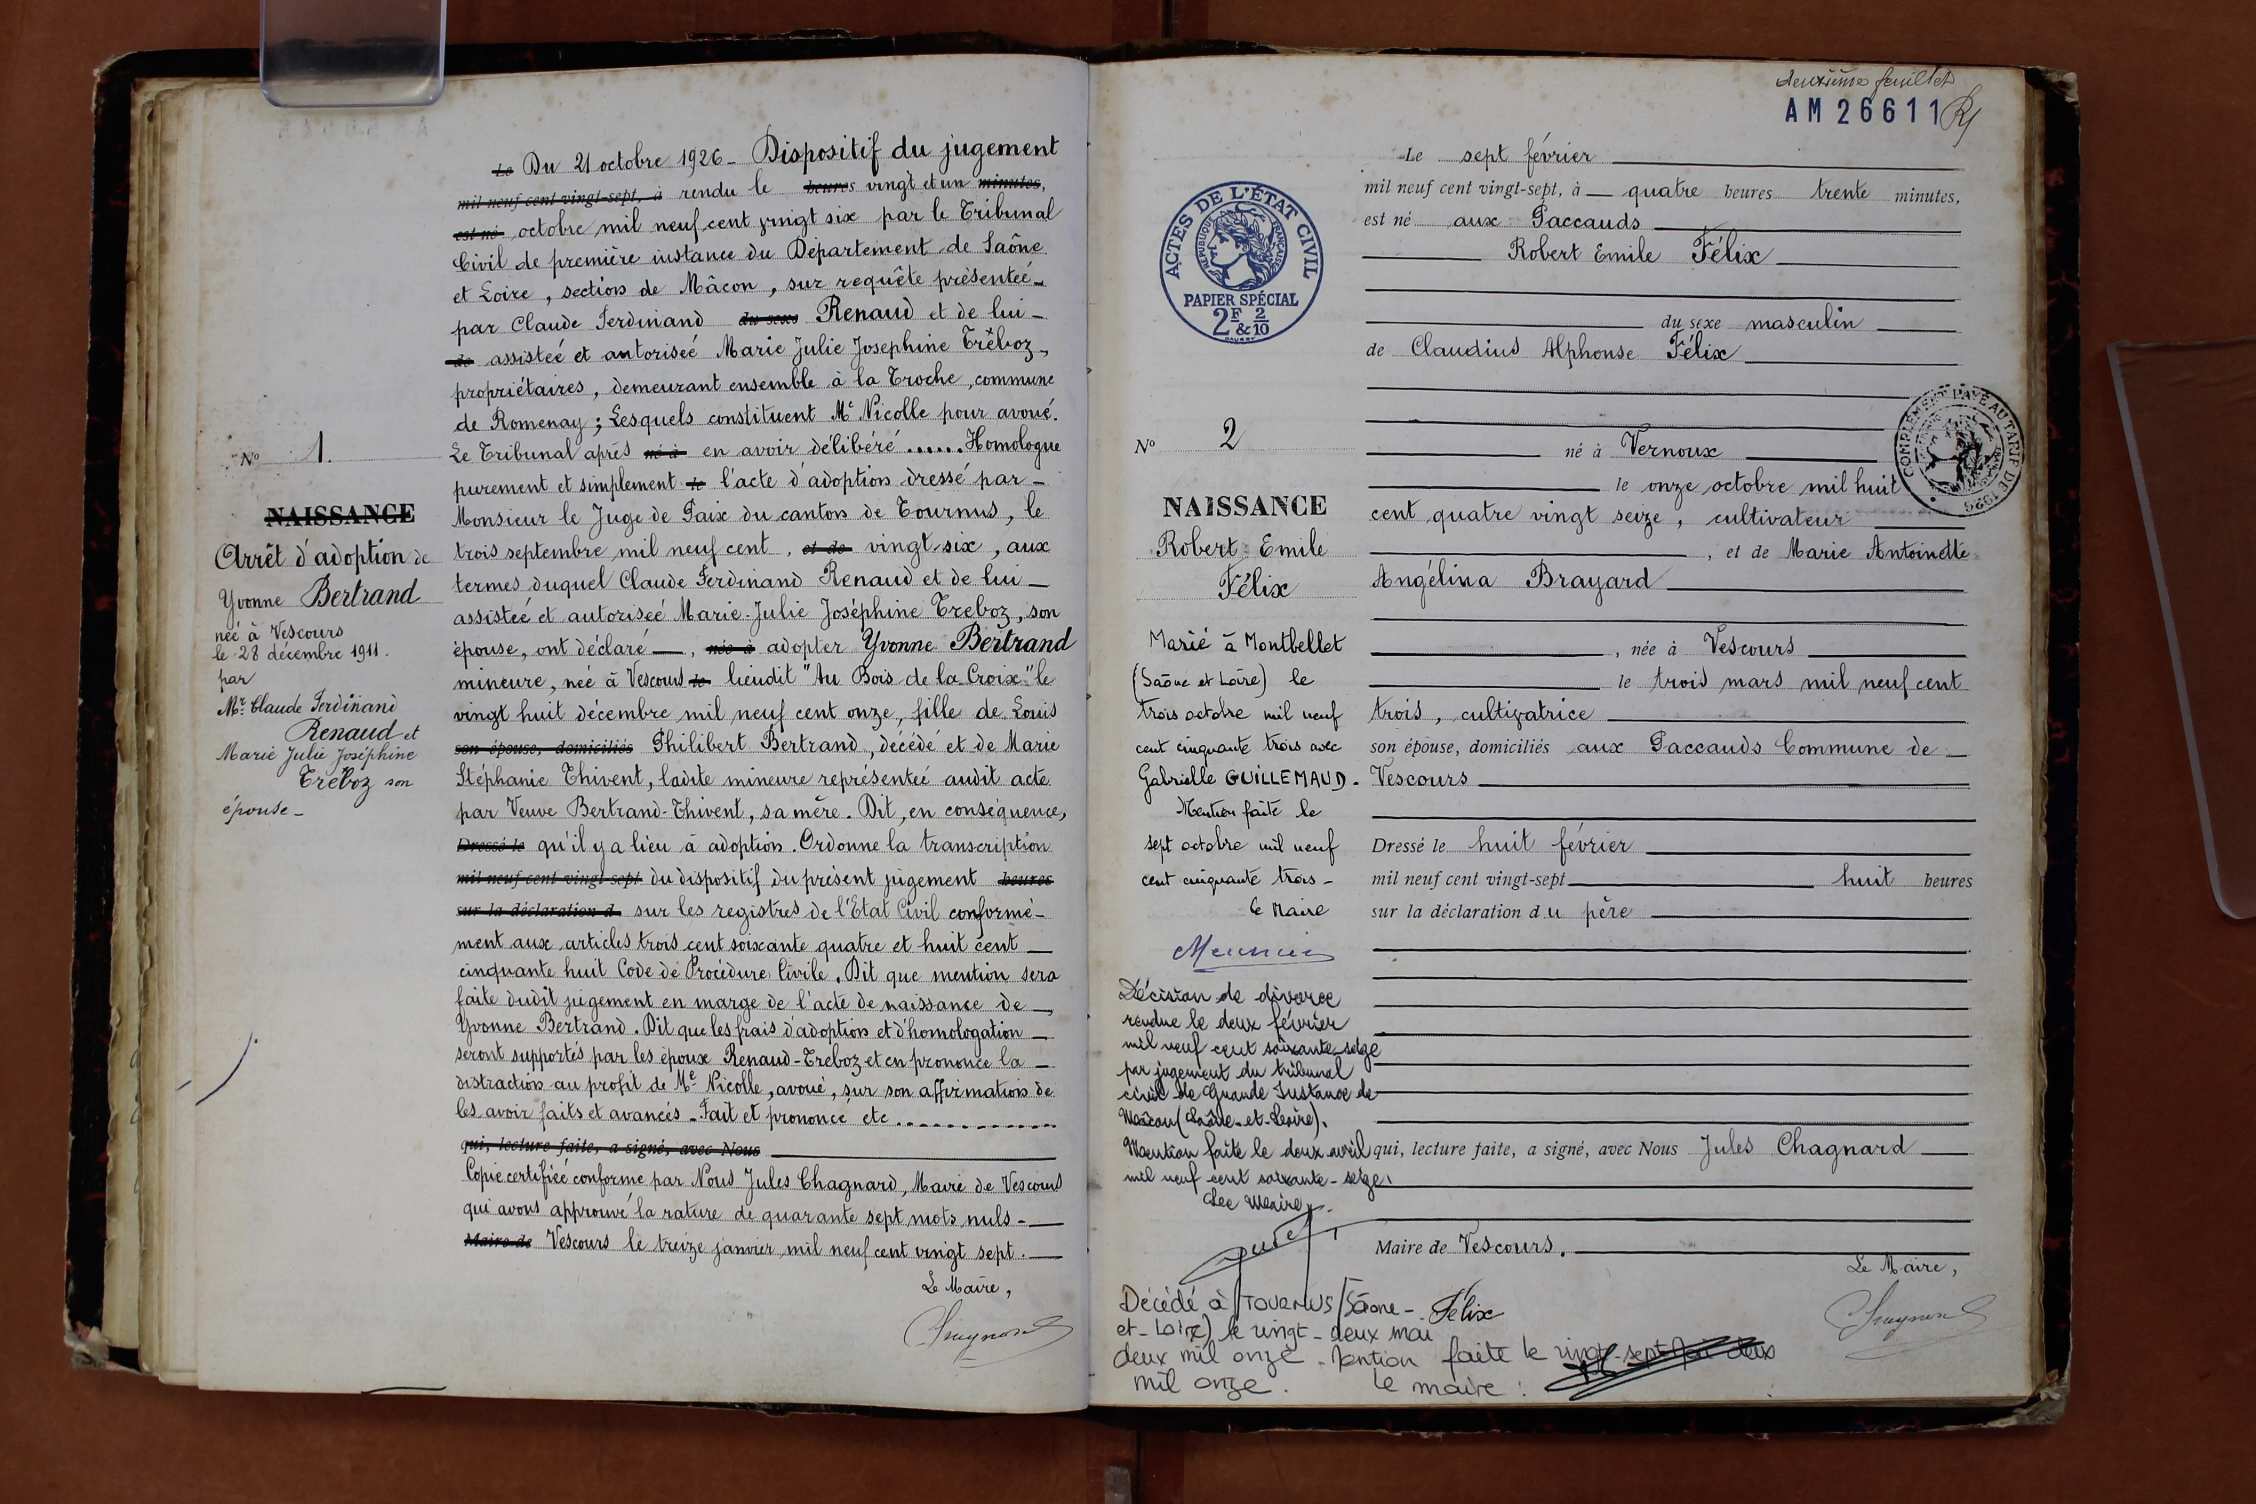 Nº 1.
NAISSANCE
Arrêt d'adoption de
Yvonne Bertrand
née à Vescours
le 28 décembre 1911.
par
Mr. Claude Ferdinand
Renaud et
Marie Julie Joséphine
Tréboz son
épouse -
Le Du 21 octobre 1926 - Dispositif du jugement
mil neuf cent vingt-sept, à rendu le heures vingt et un minutes,
est né octobre mil neuf cent vingt six par le Tribunal
Civil de première instance du Département de Saône
et Loire, section de Mâcon, sur requête présenteé -
par Claude Ferdinand du sexe Renaud et de lui -
de assisteé et autoriseé Marie Julie Josephine Trèboz,
propriétaires, demeurant ensemble à la Troche, commune
de Romenay; Lesquels constituent Me Nicolle pour avoué.
Le Tribunal après né à en avoir délibéré ...... Homologue
purement et simplement le l'acte d'adoption dressé par -
Monsieur le Juge de Paix du canton de Tournus, le
trois septembre mil neuf cent, et de vingt-six, aux
termes duquel Claude Ferdinand Renaud et de lui -
assisteé et autoriseé Marie-Julie Joséphine Treboz, son
épouse, ont déclaré -, née à adopter Yvonne Bertrand
mineure, neé à Vescours le lieudit "Au Bois de la Croix" le
vingt huit décembre mil neuf cent onze, fille de Louis
son épouse, domiciliés Philibert Bertrand, décédé et de Marie
Stéphanie Thivent, ladite mineure représenteé audit acte
par Veuve Bertrand-Thivent, sa mère. Dit, en conséquence,
Dressé le qu'il y a lieu à adoption. Ordonne la transcription
mil neuf cent vingt-sept du dispositif du présent jugement heures
sur la déclaration d sur les registres de l'Etat Civil conformé-
ment aux articles trois cent soixante quatre et huit cent -
cinquante huit Code de Procédure Civile. Dit que mention sera
faite dudit jugement en marge de l'acte de naissance de -
Yvonne Bertrand. Dit que les frais d'adoption et d'homologation -
seront supportés par les époux Renaud-Treboz et en prononce la -
distraction au profit de Me Nicolle, avoué, sur son affirmation de
les avoir faits et avancés - Fait et prononcé etc .............
qui, lecture faite, a signé, avec Nous
Copie certifieé conforme par Nous Jules Chagnard, Maire de Vescours
qui avons approuvé la rature de quarante sept mots nuls -
Maire de Vescours le treize janvier mil neuf cent vingt sept.
Le Maire,
deuxième feuillet
AM 26611
ACTES DE L'ÉTAT CIVIL
RÉPUBLIQUE FRANÇAISE
PAPIER SPÉCIAL
2F & 2/10
Nº 2
NAISSANCE
Robert Emile
Félix
Marié à Montbellet
(Saône et Loire) le
trois octobre mil neuf
cent cinquante trois avec
Gabrielle GUILLEMAUD -
Mention faite le
sept octobre mil neuf
cent cinquante trois -
Le Maire
Meunier
Décision de divorce
rendue le deux février
mil neuf cent soixante-seize
par jugement du tribunal
civil de Grande Instance de
Mâcon (Saône-et-Loire).
Mention faite le deux avril
mil neuf cent soixante-seize.
Le Maire,
Décédé à TOURNUS (Sâone-
et-Loire) le vingt-deux mai
deux mil onze. Mention faite le vingt-sept mai deux
mil onze. Le maire :
Le sept février
mil neuf cent vingt-sept, à - quatre heures trente minutes,
est né aux Paccauds
Robert Emile Félix
du sexe masculin
de Claudius Alphonse Félix
COMPLÉMENT PAYÉ AU TARIF DE 1926
né à Vernoux
le onze octobre mil huit
cent quatre vingt seize, cultivateur
, et de Marie Antoinette
Angélina Brayard
, née à Vescours
le trois mars mil neuf cent
trois, cultivatrice
son épouse, domiciliés aux Paccauds Commune de
Vescours
Dressé le huit février
mil neuf cent vingt-sept huit heures
sur la déclaration du père
qui, lecture faite, a signé, avec Nous Jules Chagnard
Maire de Vescours.
Le Maire,
Félix